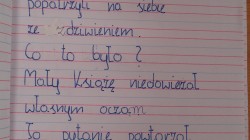 popatrzyli na siebie
ze zdziwieniem.
Co to było?
Mały Książę niedowierzał
własnym oczom
To pytanie powtarzał